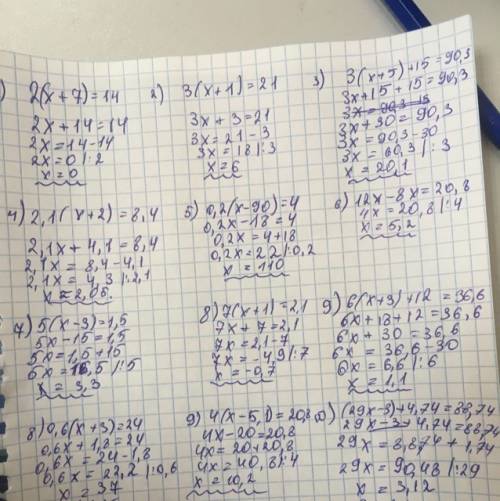 )
2(x+7)=14
2x+14=14
2x=14-14
2x=0|:2
x=0
2)
3(x+1)=21
3x+3=21
3x=21-3
3x=18|:3
x=6
3)
3(x+5)+15=90,3
3x+15+15=90,3
3x+30=90,3
3x=90,3-30
3x=60,3|:3
x=20,1
4) 2,1(x+2)=8,4
2,1x+4,1=8,4
2,1x=8,4-4,1
2,1x=4,3|:2,1
x=2,05
5) 0,2(x-90)=4
0,2x-18=4
0,2x=4+18
0,2x=22|:0,2
x=110
6) 12x-8x=20,8
4x=20,8|:4
x=5,2
7) 5(x-3)=1,5
5x-15=1,5
5x=1,5+15
5x=16,5|:5
x=3,3
8) 7(x+1)=2,1
7x+7=2,1
7x=2,1-7
7x=-4,9|:7
x=-0,7
9) 6(x+3)+12=36,6
6x+18+12=36,6
6x+30=36,6
6x=36,6-30
6x=6,6|:6
x=1,1
8) 0,6(x+3)=24
0,6x+1,8=24
0,6x=24-1,8
0,6x=22,2|:0,6
x=37
9) 4(x-5,1)=20,8
4x-20=20,8
4x=20+20,8
4x=40,8|:4
x=10,2
(29x-3)+4,74=88,74
29x-3+4,74=88,74
29x=90,48|:29
x=3,12